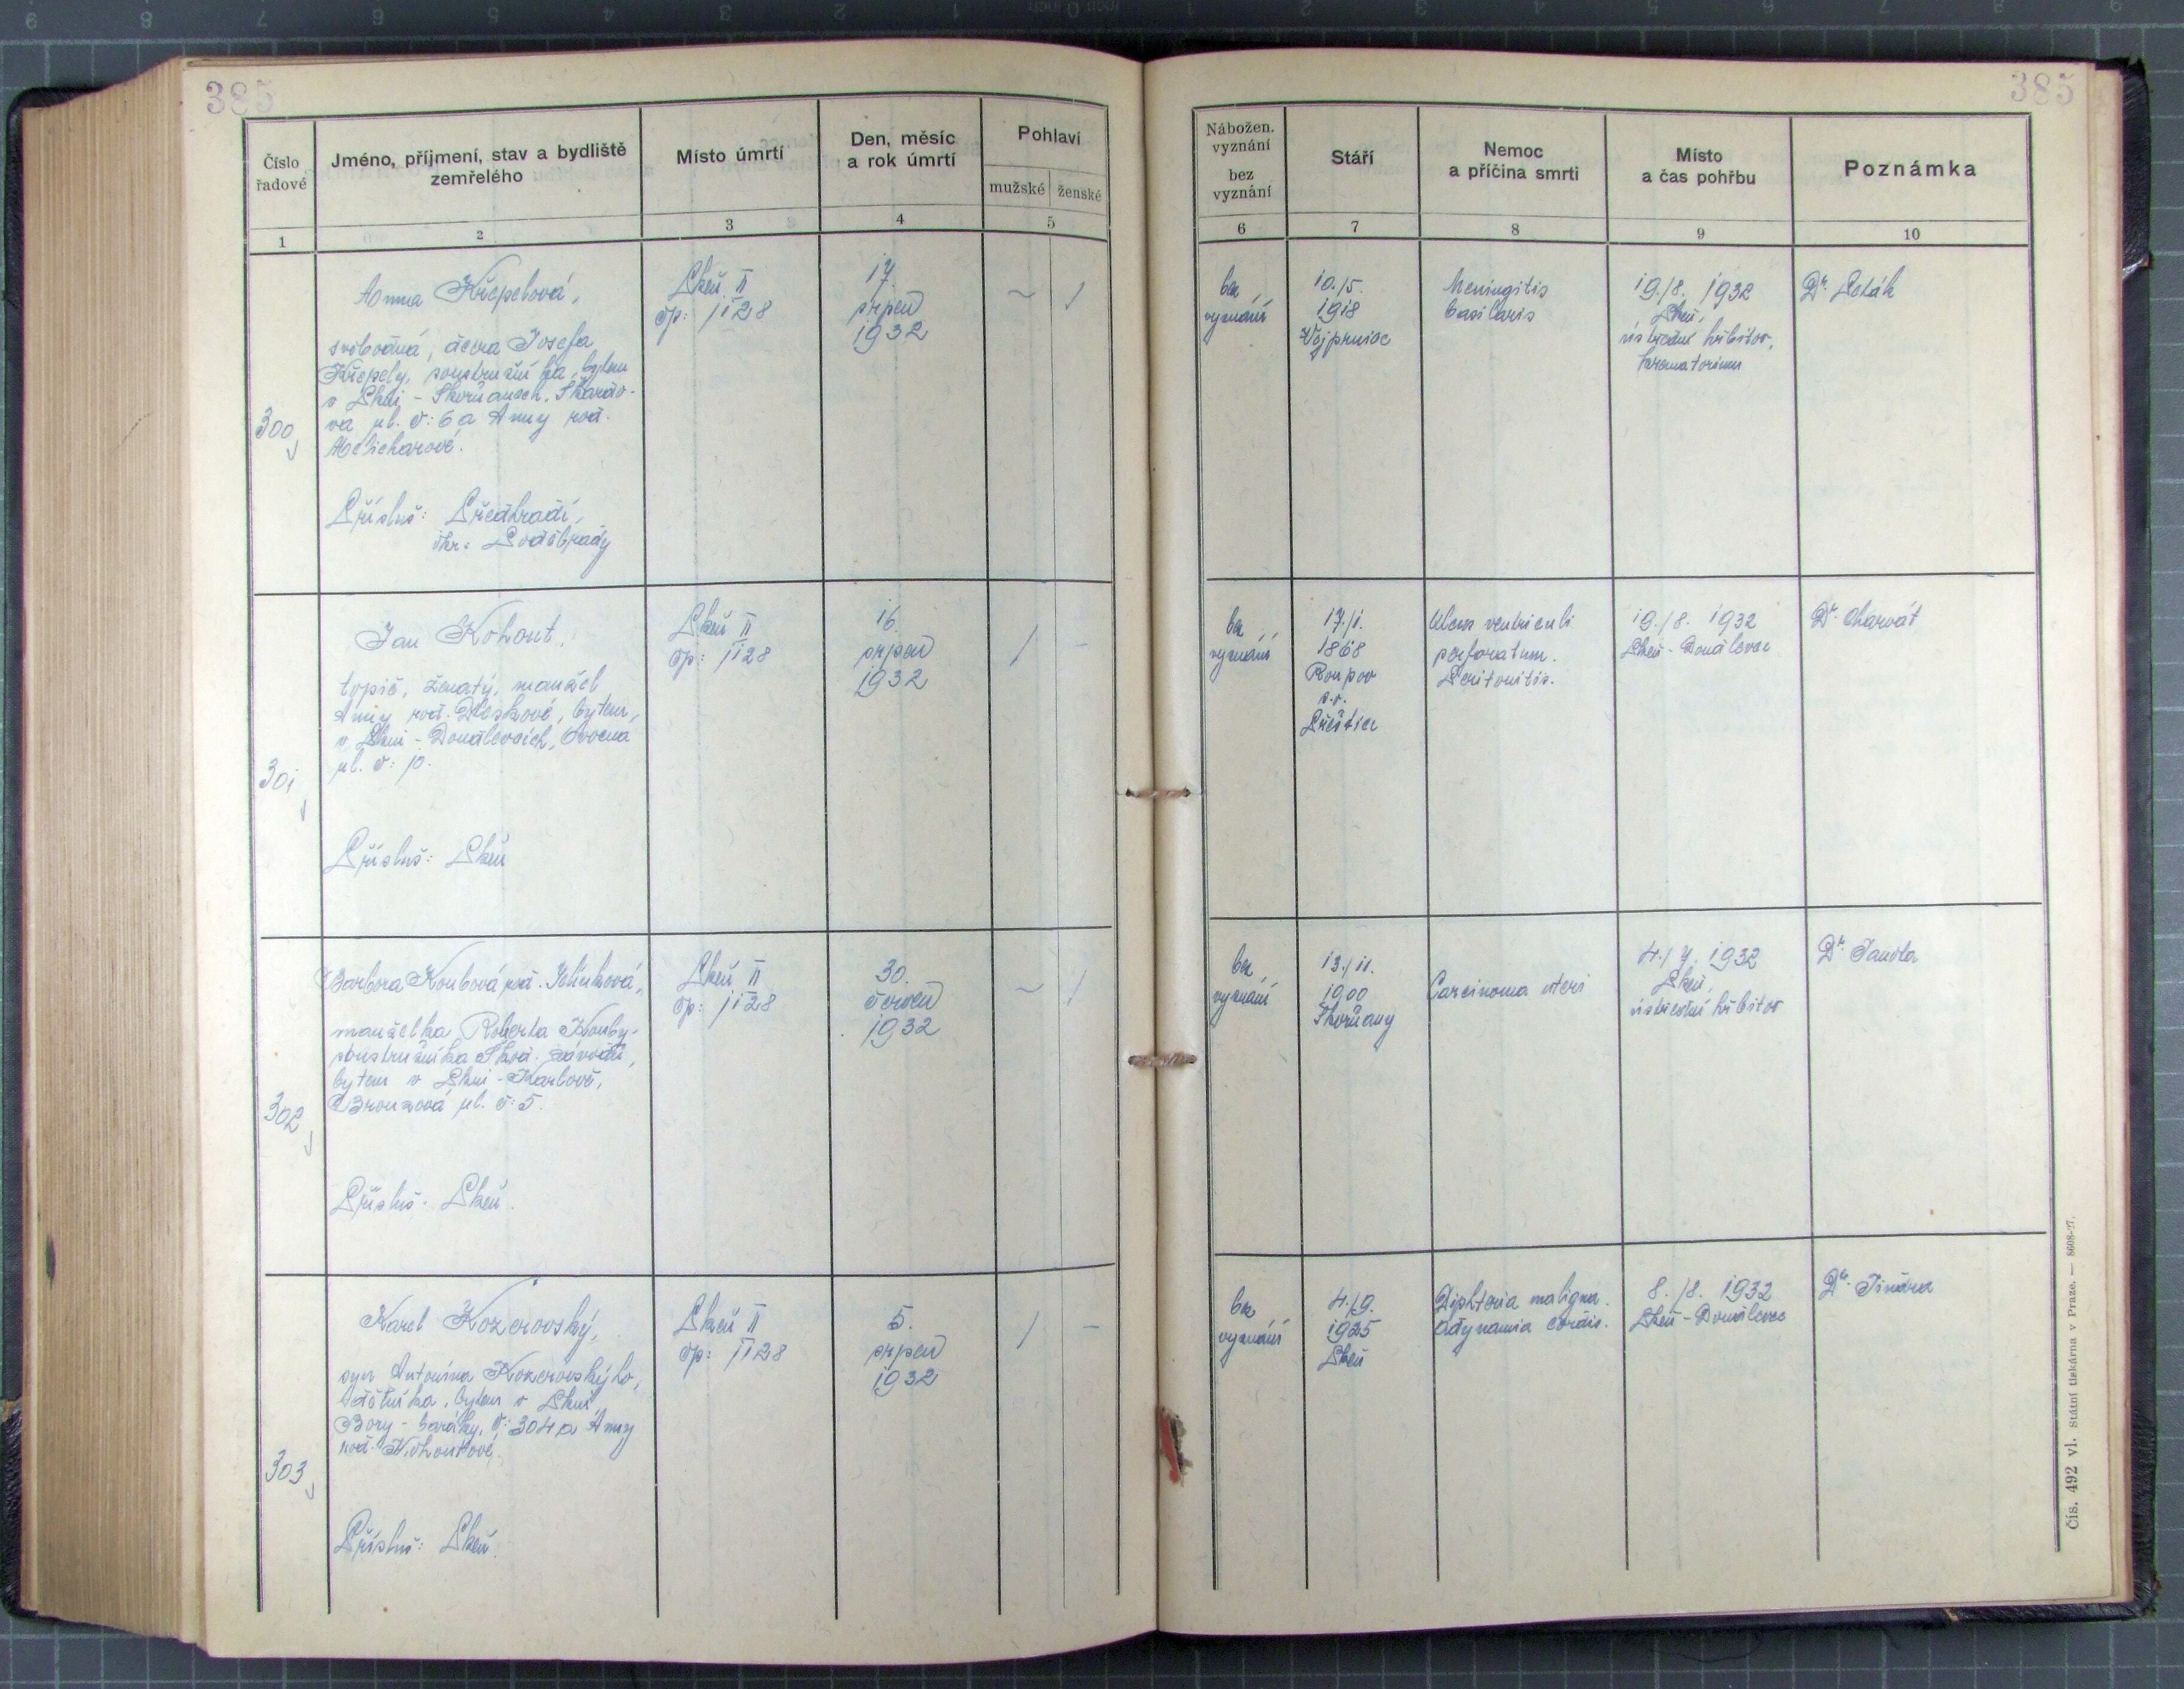 385
385
Číslo
řadové
Jméno, příjmení, stav a bydliště
zemřelého
Místo úmrtí
Den, měsíc
a rok úmrtí
Pohlaví
mužské
ženské
1
2
3
4
5
Nábožen.
vyznání
bez
vyznání
Stáří
Nemoc
a příčina smrti
Místo
a čas pohřbu
Poznámka
6
7
8
9
10
300
Anna Křepelová,
svobodná, dcera Josefa
Křepely, soustružníka, bytem
v Plzni - Skvrňanech,
ul. č: 6 a Anny roz.
Melicharové.
Přísluš: Předhradí,
okr: Poděbrady
Plzeň II
čp: 1128
17.
srpen
1932
~ 1
bez
vyznání
10./5.
1918
Vejprnice
Meningitis
basilaris
19./8. 1932
Plzeň,
ústřední hřbitov,
krematorium
Dr.
301
Jan Kohout,
topič, ženatý, manžel
Anny roz. bytem
v Plzni - Doudlevcích, Ovocná
ul. č: 10.
Přísluš: Plzeň
Plzeň II
čp: 1128
16.
srpen
1932
1 -
bez
vyznání
17./1.
1868
Roupov
Přeštice
Ulcus ventriculi
perforatum.
Peritonitis.
19./8. 1932
Plzeň - Doudlevce
Dr. Charvát
302
Barbora Koubová roz. Jelínková,
manželka Roberta Kouby,
soustružníka Škod. závodů,
bytem v Plzni - Karlově,
Bronzová ul. č: 5.
Přísluš: Plzeň.
Plzeň II
čp: 1128
30.
červen
1932
~ 1
bez
vyznání
13./11.
1900
Skvrňany
Carcinoma uteri
4./7. 1932
Plzeň,
ústřední hřbitov
Dr. Janota
303
Karel Kozerovský,
syn Antonína Kozerovského,
bytem v Plzni,
Bory - baráky, č: 304 a Anny
roz. Kohoutové.
Přísluš: Plzeň.
Plzeň II
čp: 1128
5.
srpen
1932
1 -
bez
vyznání
4./9.
1925
Plzeň
Diphteria maligna.
Adynamia cordis.
8./8. 1932
Plzeň - Doudlevce
Dr.
Čís. 492 vl. Státní tiskárna v Praze. — 8608-27.